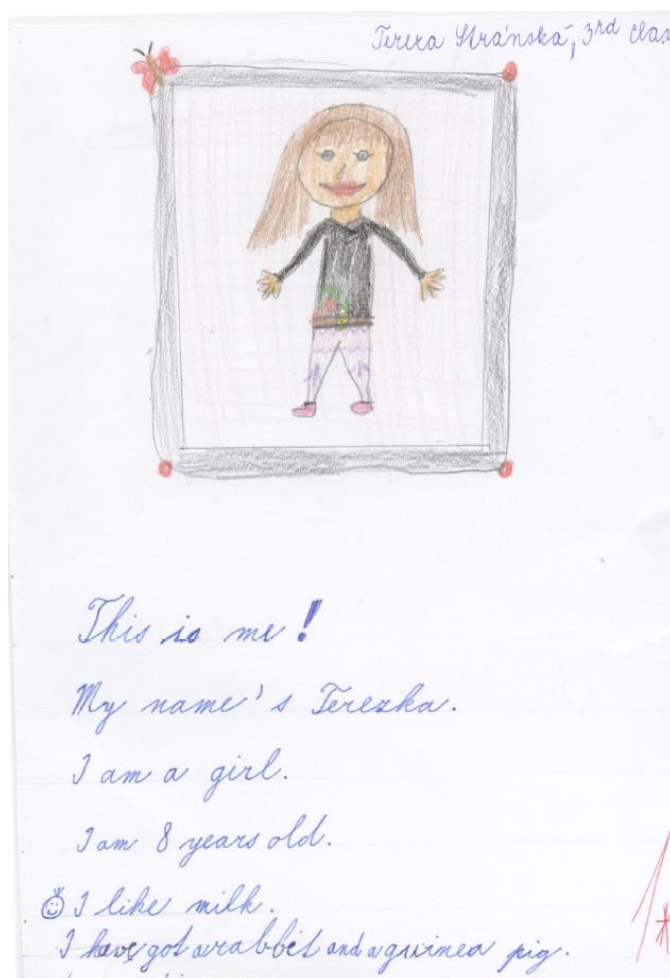 Tereza Stránská, 3rd clas
This is me!
My name's Terezka.
I am a girl.
I am 8 years old.
I like milk.
I have got a rabbit and a guinea pig.
1*